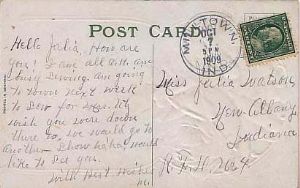 POST CARD
MILLTOWN,
OCT
7
1909
IND.
Hello Julia, How are
you? I am all O.K. am
busy Sewing. am going
to town next week
to Sew for
wish you were down
there to, we would go to
another Show ha! ha! would
like to See you.
With Best Wishes
Miss Julia Watson
New Albany
Indiana